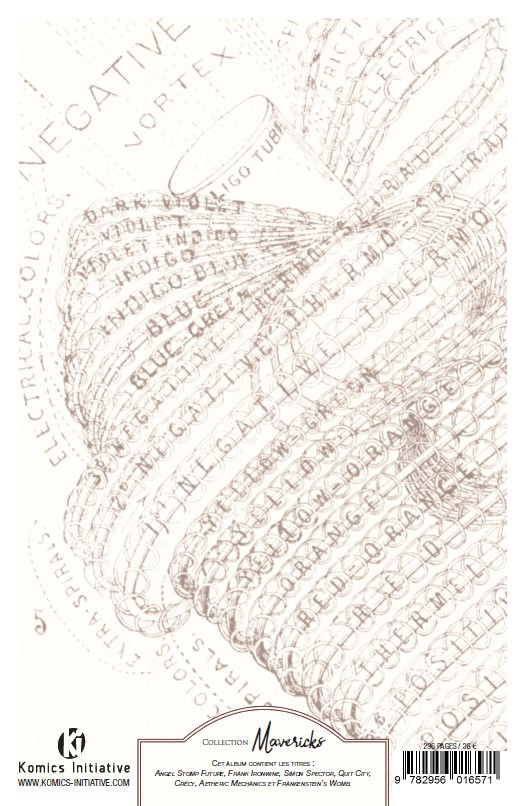 NEGATIVE
VORTEX
FRICTI
ELECTRIC
ELECTRICAL COLORS.
DARK VIOLET
VIOLET
VIOLET INDIGO
INDIGO
INDIGO BLUE
BLUE
BLUE GREEN THERMO-SPIRAL
3D NEGATIVE THERMO SPIRAL
2D NEGATIVE THERMO-
1ST NEGATIVE THERMO-
YELLOW-GREEN
YELLOW
YELLOW-ORANGE
ORANGE
RED-ORANGE
RED
THERMEL
POSITIV
POSI
EXTRA-SPIRALS.
COLORS
SPIRALS
Ki
Komics Initiative
WWW.KOMICS-INITIATIVE.COM
COLLECTION Mavericks
CET ALBUM CONTIENT LES TITRES :
ANGEL STOMP FUTURE, FRANK IRONWINE, SIMON SPECTOR, QUIT CITY,
CRÉCY, AETHERIC MECHANICS ET FRANKENSTEIN'S WOMB.
296 PAGES / 26 €
9 782956 016571